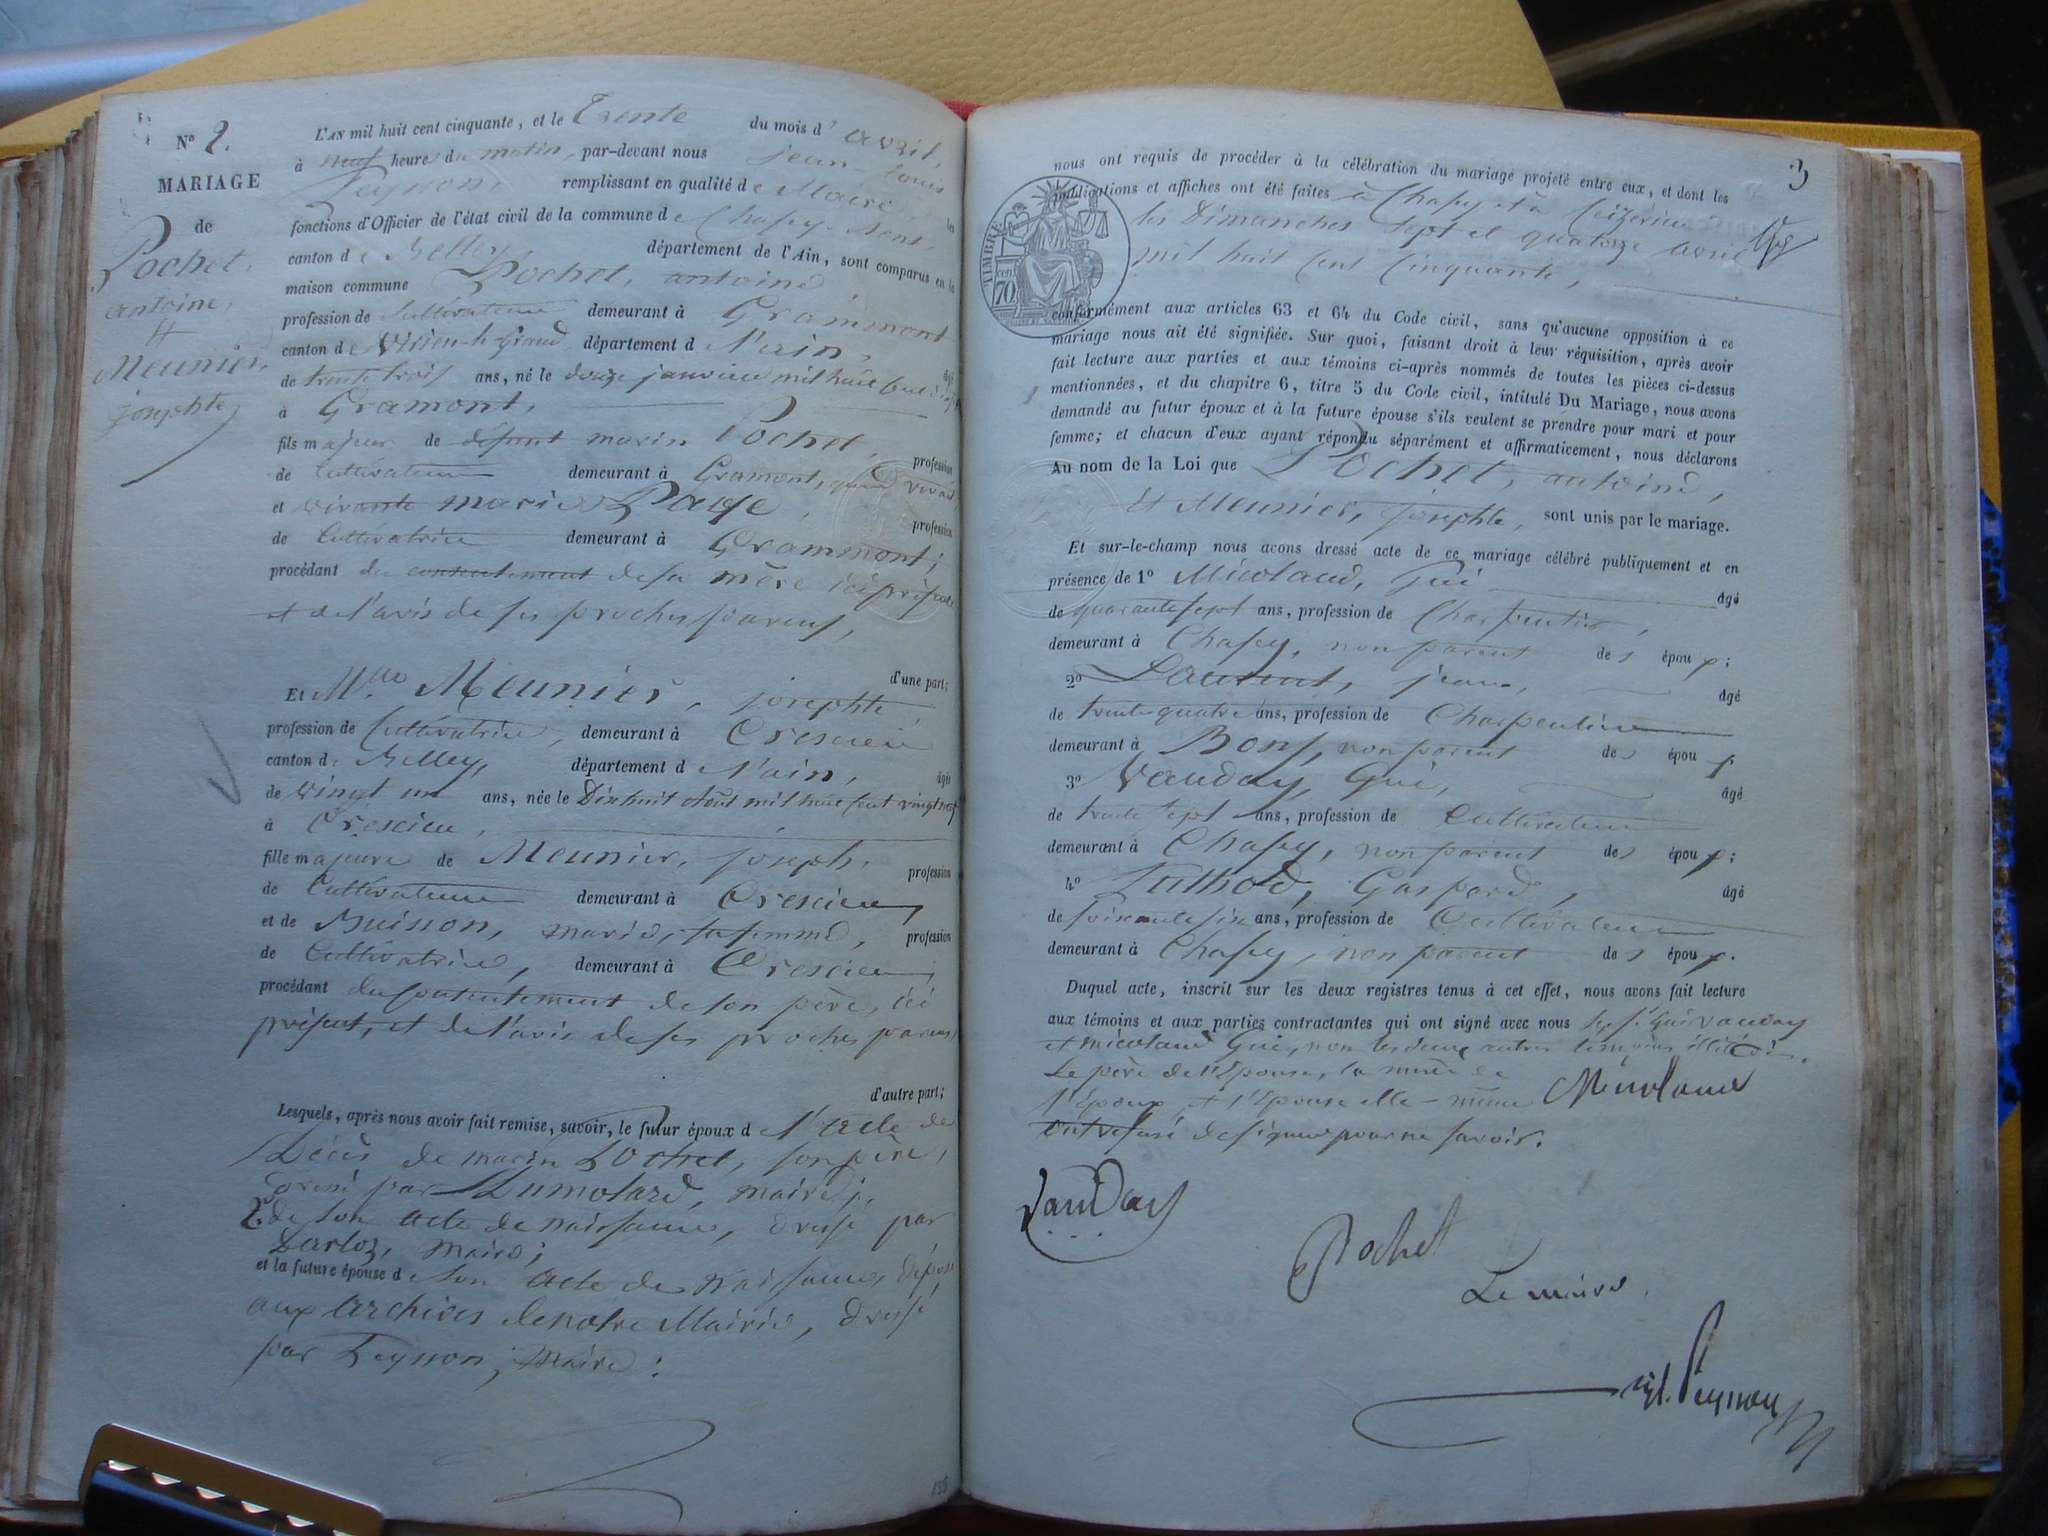 No 2.
MARIAGE
de
Pochet,
antoine,
et
Meunier,
josephte
L'AN mil huit cent cinquante, et le Trente du mois d'avril,
à neuf heures du matin, par-devant nous jean-Louis
Peysson remplissant en qualité de Maire les
fonctions d'Officier de l'état civil de la commune de Chazey-Bons,
canton de Belley, département de l'Ain, sont comparus en la
maison commune Pochet, antoine,
profession de Cultivateur demeurant à Grammont
canton de Virieu-le-Grand département d l'ain, âgé
de trente trois ans, né le douze janvier mil huit cent
à Gramont,
fils majeur de défunt marin Pochet, profession
de Cultivateur demeurant à Gramont, quand vivait,
et vivante marie Page, profession
de Cultivatrice demeurant à Grammont;
procédant du consentement de sa mère ici présente
et de l'avis de ses proches parens,
d'une part;
Et Mlle Meunier, josephte,
profession de Cultivatrice, demeurant à Crescieu
canton de Belley, département d l'ain, âgée
de vingt un ans, née le Dix huit août mil huit cent vingt
à Crescieu,
fille majeure de Meunier, joseph, profession
de Cultivateur demeurant à Crescieu,
et de Buisson, marie, sa femme, profession
de Cultivatrice, demeurant à Crescieu,
procédant du consentement de son père, ici
présent, et de l'avis de ses proches parens,
d'autre part;
Lesquels, après nous avoir fait remise, savoir, le futur époux d l'acte de
Décès de marin Pochet, son père,
dressé par Dumolard, maire;
2. de son acte de naissance, dressé par
maire;
et la future épouse de son acte de naissance déposé
aux archives de notre Mairie, dressé
par Peysson, Maire:
3
nous ont requis de procéder à la célébration du mariage projeté entre eux, et dont les
publications et affiches ont été faites à Chazey et à Ceizérieu
les Dimanches sept et quatorze avril
mil huit cent cinquante,
TIMBRE
70
conformément aux articles 63 et 64 du Code civil, sans qu'aucune opposition à ce
mariage nous ait été signifiée. Sur quoi, faisant droit à leur réquisition, après avoir
fait lecture aux parties et aux témoins ci-après nommés de toutes les pièces ci-dessus
mentionnées, et du chapitre 6, titre 5 du Code civil, intitulé Du Mariage, nous avons
demandé au futur époux et à la future épouse s'ils veulent se prendre pour mari et pour
femme; et chacun d'eux ayant répondu séparément et affirmativement, nous déclarons
Au nom de la Loi que Pochet, antoine,
Et Meunier, josephte, sont unis par le mariage.
Et sur-le-champ nous avons dressé acte de ce mariage célébré publiquement et en
présence de 1o Micoland, Gui âgé
de quarante sept ans, profession de Charpentier,
demeurant à Chazey, non parent des époux;
2o Laurent, jean, âgé
de trente quatre ans, profession de Charpentier
demeurant à Bons, non parent des époux.
3o Vauday, Gui, âgé
de trente sept ans, profession de Cultivateur
demeurant à Chazey, non parent des époux;
4o Gaspard, âgé
de soixante six ans, profession de Cultivateur
demeurant à Chazey, non parent des époux.
Duquel acte, inscrit sur les deux registres tenus à cet effet, nous avons fait lecture
aux témoins et aux parties contractantes qui ont signé avec nous Gui Vauday
et micoland Gui, non les deux autres témoins
Le père de l'Epouse, la mère de
l'époux, et l'Epouse elle-même
ont refusé de signer pour ne savoir.
Micoland
Vauday
Pochet
Le maire,
Peysson